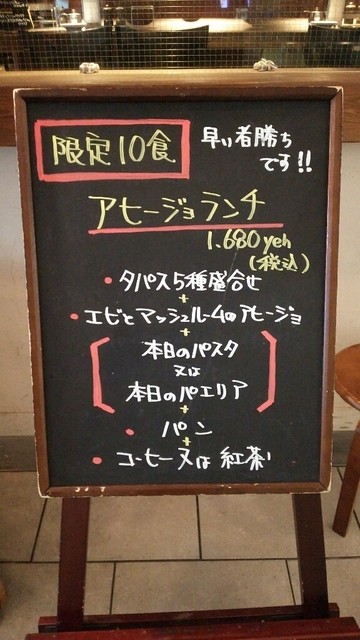 限定10食
早い者勝ち
です!!
アヒージョランチ
1.680yen
(税込)
・タパス5種盛合せ
+
・エビとマッシュルームのアヒージョ
+
本日のパスタ
又は
本日のパエリア
+
・パン
+
・コーヒー又は紅茶